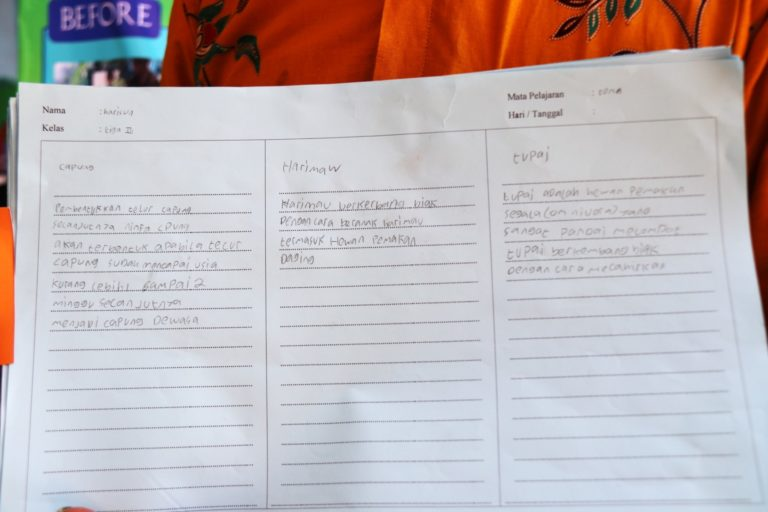 BEFORE
Nama :
Kelas : tiga III
Mata Pelajaran :
Hari / Tanggal :
capung
Pembentukkan telur capung
selanjutnya ninfa cpung
akan terbentuk apabila telur
capung sudah mencapai usia
kurang lebih sampai 2
minggu selanjutnya
menjadi capung Dewasa
Harimaw
Harimau berkerbang biak
Dengan cara beranak harimau
termasuk Hewan Pemakan
Daging
tupai
tupai adalah hewan Pemakan
segala (omnivora) yang
sangat Pandai melompat
tupai berkembang biak
Dengan cara melahirkan